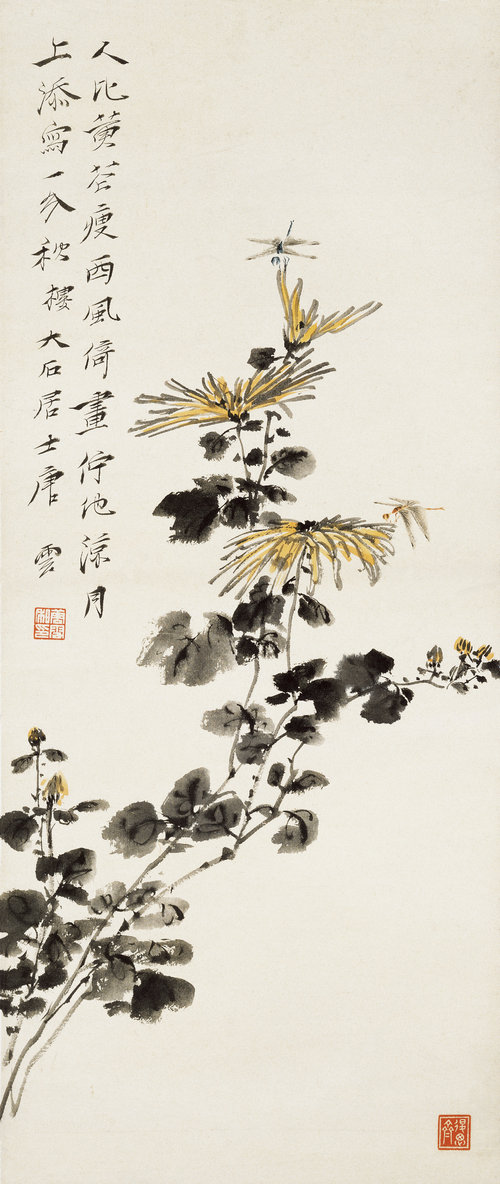 人比黄花瘦西風倚畫佇他涼月
上添寫一分秋樓大石居士唐雲